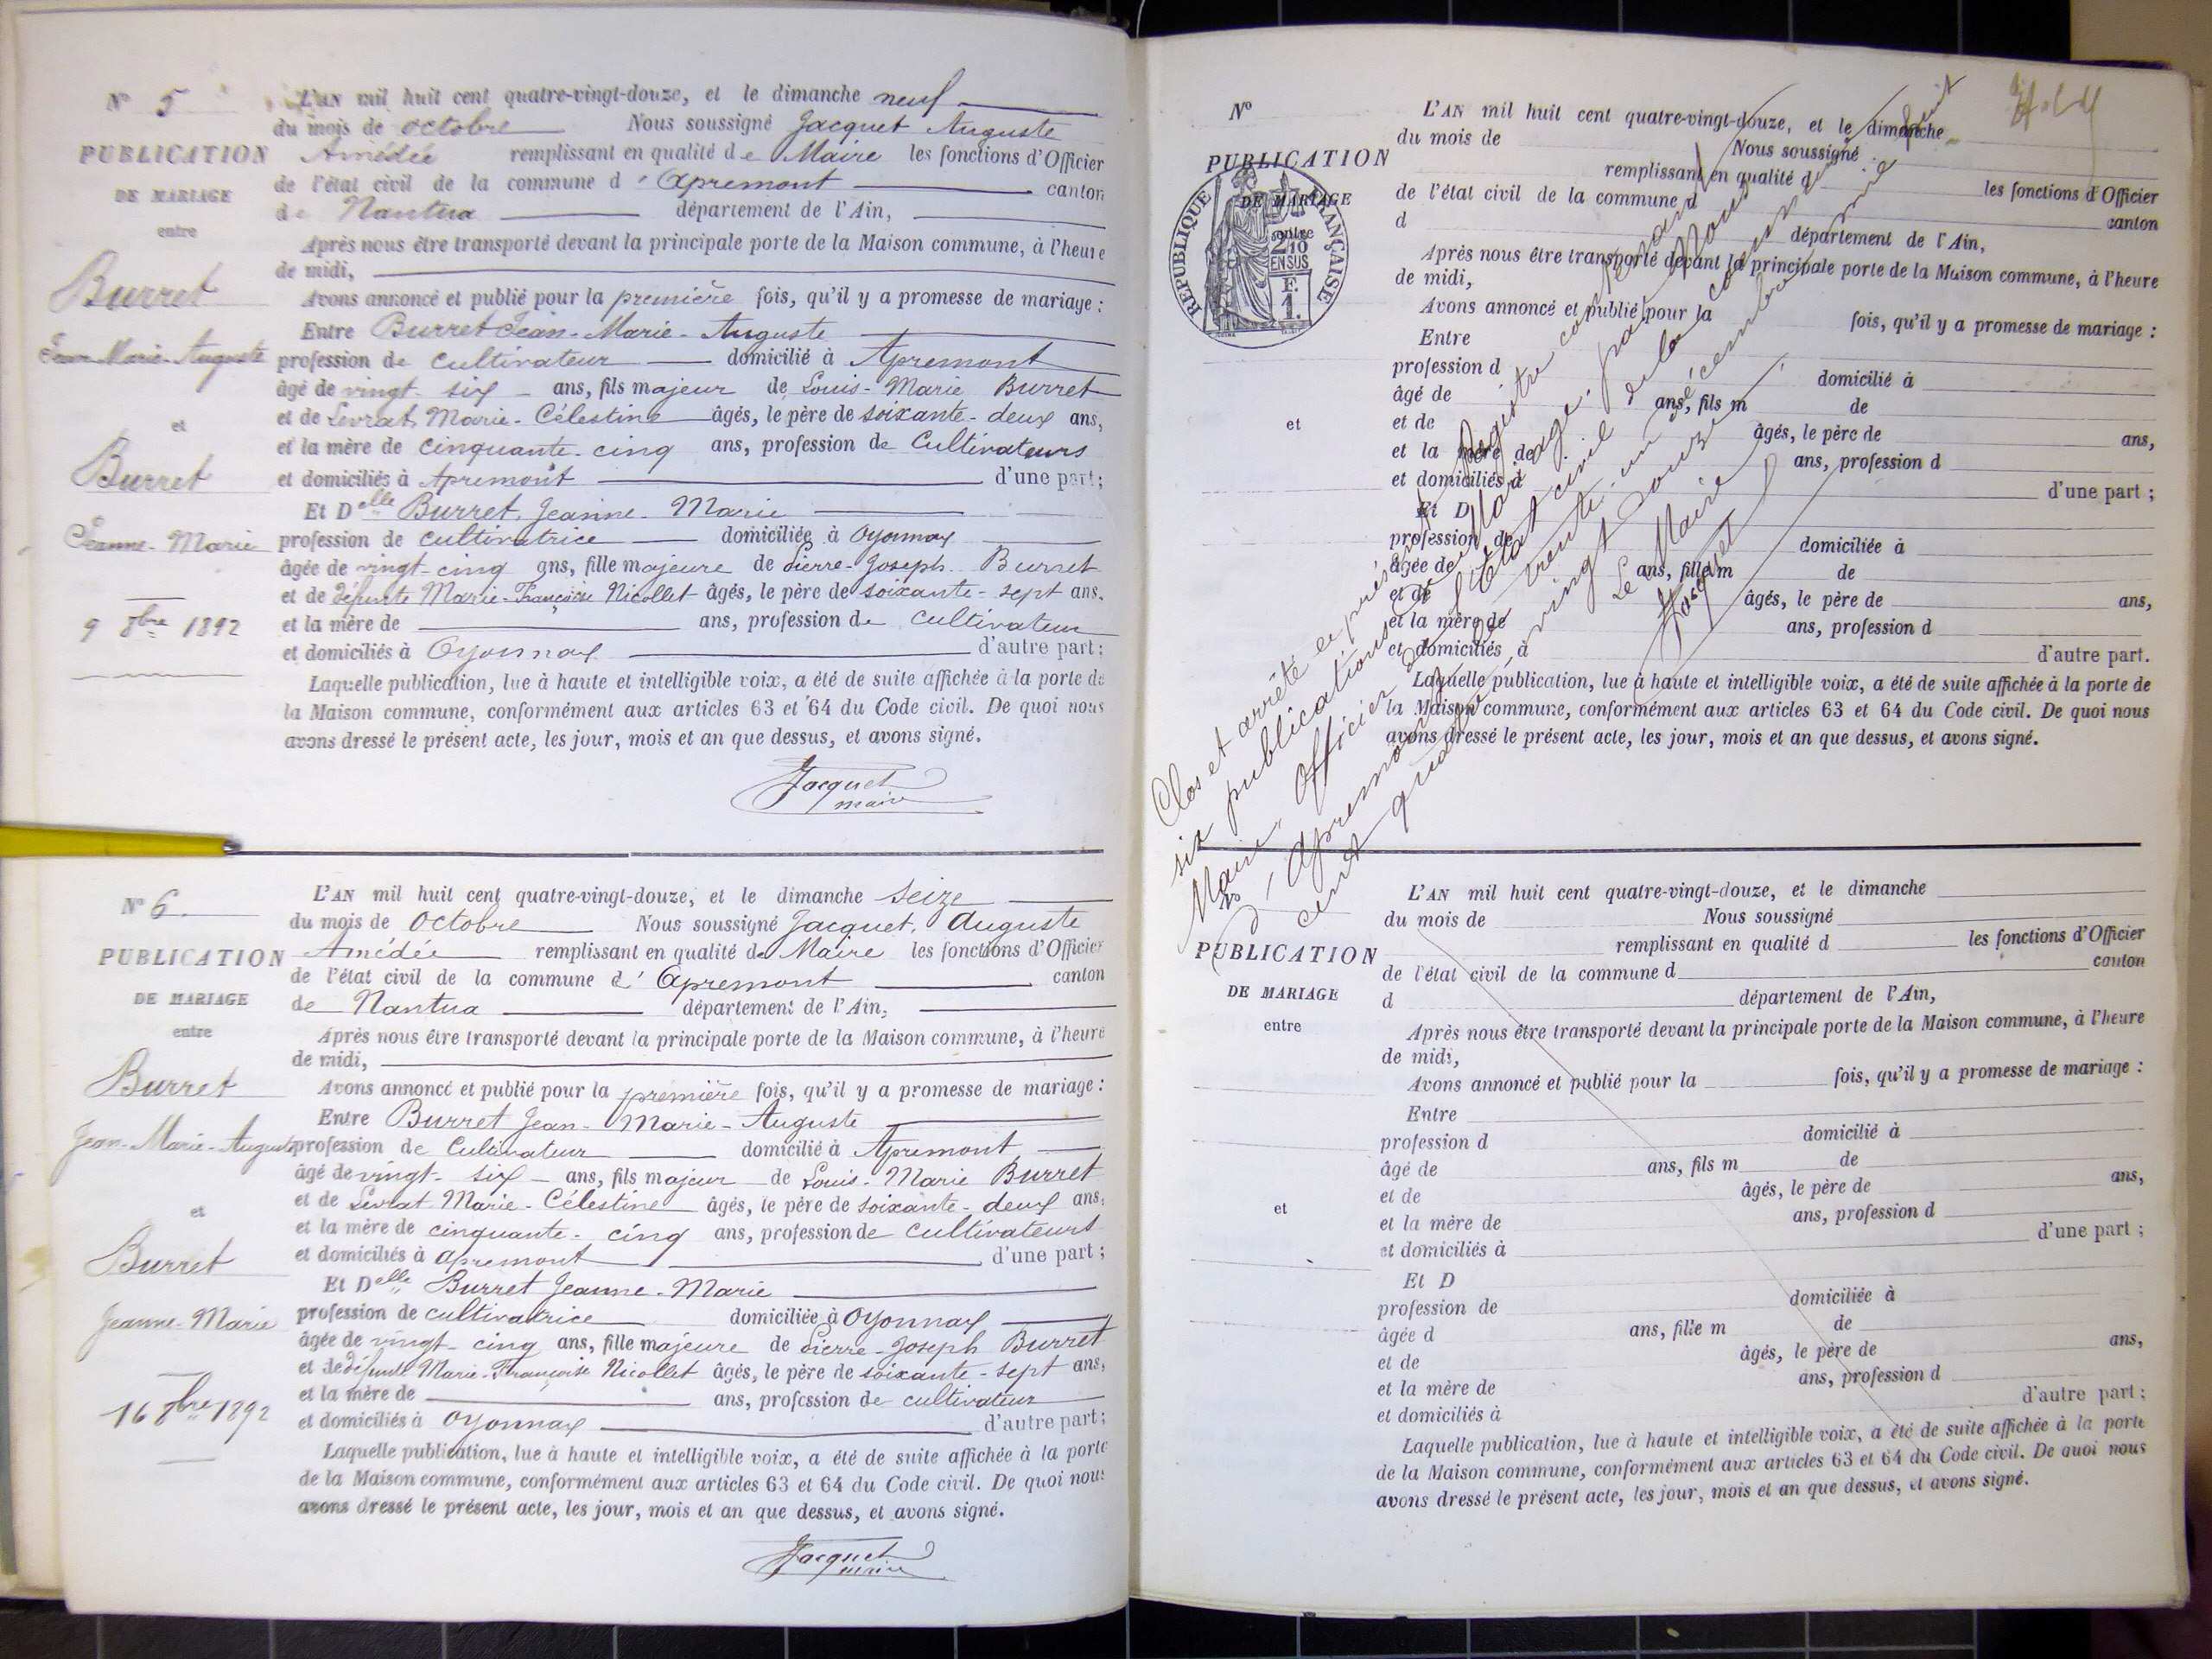 N° 5
PUBLICATION
DE MARIAGE
entre
Burret
Jean-Marie-Auguste
et
Burret
Jeanne-Marie
9 8bre 1892
L'AN mil huit cent quatre-vingt-douze, et le dimanche neuf
du mois de octobre Nous soussigné Jacquet Auguste
Amédée remplissant en qualité de Maire les fonctions d'Officier
de l'état civil de la commune d'Apremont canton
de Nantua département de l'Ain,
Après nous être transporté devant la principale porte de la Maison commune, à l'heure
de midi,
Avons annoncé et publié pour la première fois, qu'il y a promesse de mariage :
Entre Burret Jean-Marie-Auguste
profession de cultivateur domicilié à Apremont
âgé de vingt-six ans, fils majeur de Louis-Marie Burret
et de Levrat Marie-Célestine âgés, le père de soixante-deux ans,
et la mère de cinquante-cinq ans, profession de Cultivateurs
et domiciliés à Apremont d'une part ;
Et Delle Burret, Jeanne-Marie
profession de cultivatrice domiciliée à Oyonnax
âgée de vingt-cinq ans, fille majeure de Pierre-Joseph Burret
et de défunte Marie-Françoise Nicollet âgés, le père de soixante-sept ans.
et la mère de ans, profession de cultivateur
et domiciliés à Oyonnax d'autre part ;
Laquelle publication, lue à haute et intelligible voix, a été de suite affichée à la porte de
la Maison commune, conformément aux articles 63 et 64 du Code civil. De quoi nous
avons dressé le présent acte, les jour, mois et an que dessus, et avons signé.
Jacquet
maire
N° 6.
PUBLICATION
DE MARIAGE
entre
Burret
Jean-Marie-Auguste
et
Burret
Jeanne-Marie
16 8bre 1892
L'AN mil huit cent quatre-vingt-douze, et le dimanche seize
du mois de Octobre Nous soussigné Jacquet, Auguste
Amédée remplissant en qualité de Maire les fonctions d'Officier
de l'état civil de la commune d'Apremont canton
de Nantua département de l'Ain,
Après nous être transporté devant la principale porte de la Maison commune, à l'heure
de midi,
Avons annoncé et publié pour la première fois, qu'il y a promesse de mariage :
Entre Burret Jean-Marie-Auguste
profession de Cultivateur domicilié à Apremont
âgé de vingt-six ans, fils majeur de Louis-Marie Burret
et de Levrat Marie-Célestine âgés, le père de soixante-deux ans,
et la mère de cinquante-cinq ans, profession de cultivateurs
et domiciliés à apremont d'une part ;
Et Delle Burret Jeanne-Marie
profession de cultivatrice domiciliée à Oyonnax
âgée de vingt-cinq ans, fille majeure de Pierre-Joseph Burret
et de défunte Marie-Françoise Nicollet âgés, le père de soixante-sept ans,
et la mère de ans, profession de cultivateur
et domiciliés à Oyonnax d'autre part ;
Laquelle publication, lue à haute et intelligible voix, a été de suite affichée à la porte
de la Maison commune, conformément aux articles 63 et 64 du Code civil. De quoi nous
avons dressé le présent acte, les jour, mois et an que dessus, et avons signé.
Jacquet
maire
N°
PUBLICATION
DE MARIAGE
RÉPUBLIQUE FRANÇAISE
2/10
EN SUS
F.
1.
et
L'AN mil huit cent quatre-vingt-douze, et le dimanche
du mois de Nous soussigné
remplissant en qualité d les fonctions d'Officier
de l'état civil de la commune d canton
d département de l'Ain,
Après nous être transporté devant la principale porte de la Maison commune, à l'heure
de midi,
Avons annoncé et publié pour la fois, qu'il y a promesse de mariage :
Entre
profession d domicilié à
âgé de ans, fils m de
et de âgés, le père de ans,
et la mère de ans, profession d
et domiciliés à d'une part ;
Et D
profession de domiciliée à
âgée de ans, fille m de
et de âgés, le père de ans,
et la mère de ans, profession d
et domiciliés à d'autre part.
Laquelle publication, lue à haute et intelligible voix, a été de suite affichée à la porte de
la Maison commune, conformément aux articles 63 et 64 du Code civil. De quoi nous
avons dressé le présent acte, les jour, mois et an que dessus, et avons signé.
Clos et arrêté le présent Registre contenant
six publications de Mariage par Nous
Maire, Officier de l'état civil de la commune
d'Apremont le trente-un décembre mil huit
cent quatre vingt douze.
Le Maire
Jacquet
N°
PUBLICATION
DE MARIAGE
entre
et
L'AN mil huit cent quatre-vingt-douze, et le dimanche
du mois de Nous soussigné
remplissant en qualité d les fonctions d'Officier
de l'état civil de la commune d canton
d département de l'Ain,
Après nous être transporté devant la principale porte de la Maison commune, à l'heure
de midi,
Avons annoncé et publié pour la fois, qu'il y a promesse de mariage :
Entre
profession d domicilié à
âgé de ans, fils m de
et de âgés, le père de ans,
et la mère de ans, profession d
et domiciliés à d'une part ;
Et D
profession de domiciliée à
âgée d ans, fille m de
et de âgés, le père de ans,
et la mère de ans, profession d
et domiciliés à d'autre part ;
Laquelle publication, lue à haute et intelligible voix, a été de suite affichée à la porte
de la Maison commune, conformément aux articles 63 et 64 du Code civil. De quoi nous
avons dressé le présent acte, les jour, mois et an que dessus, et avons signé.